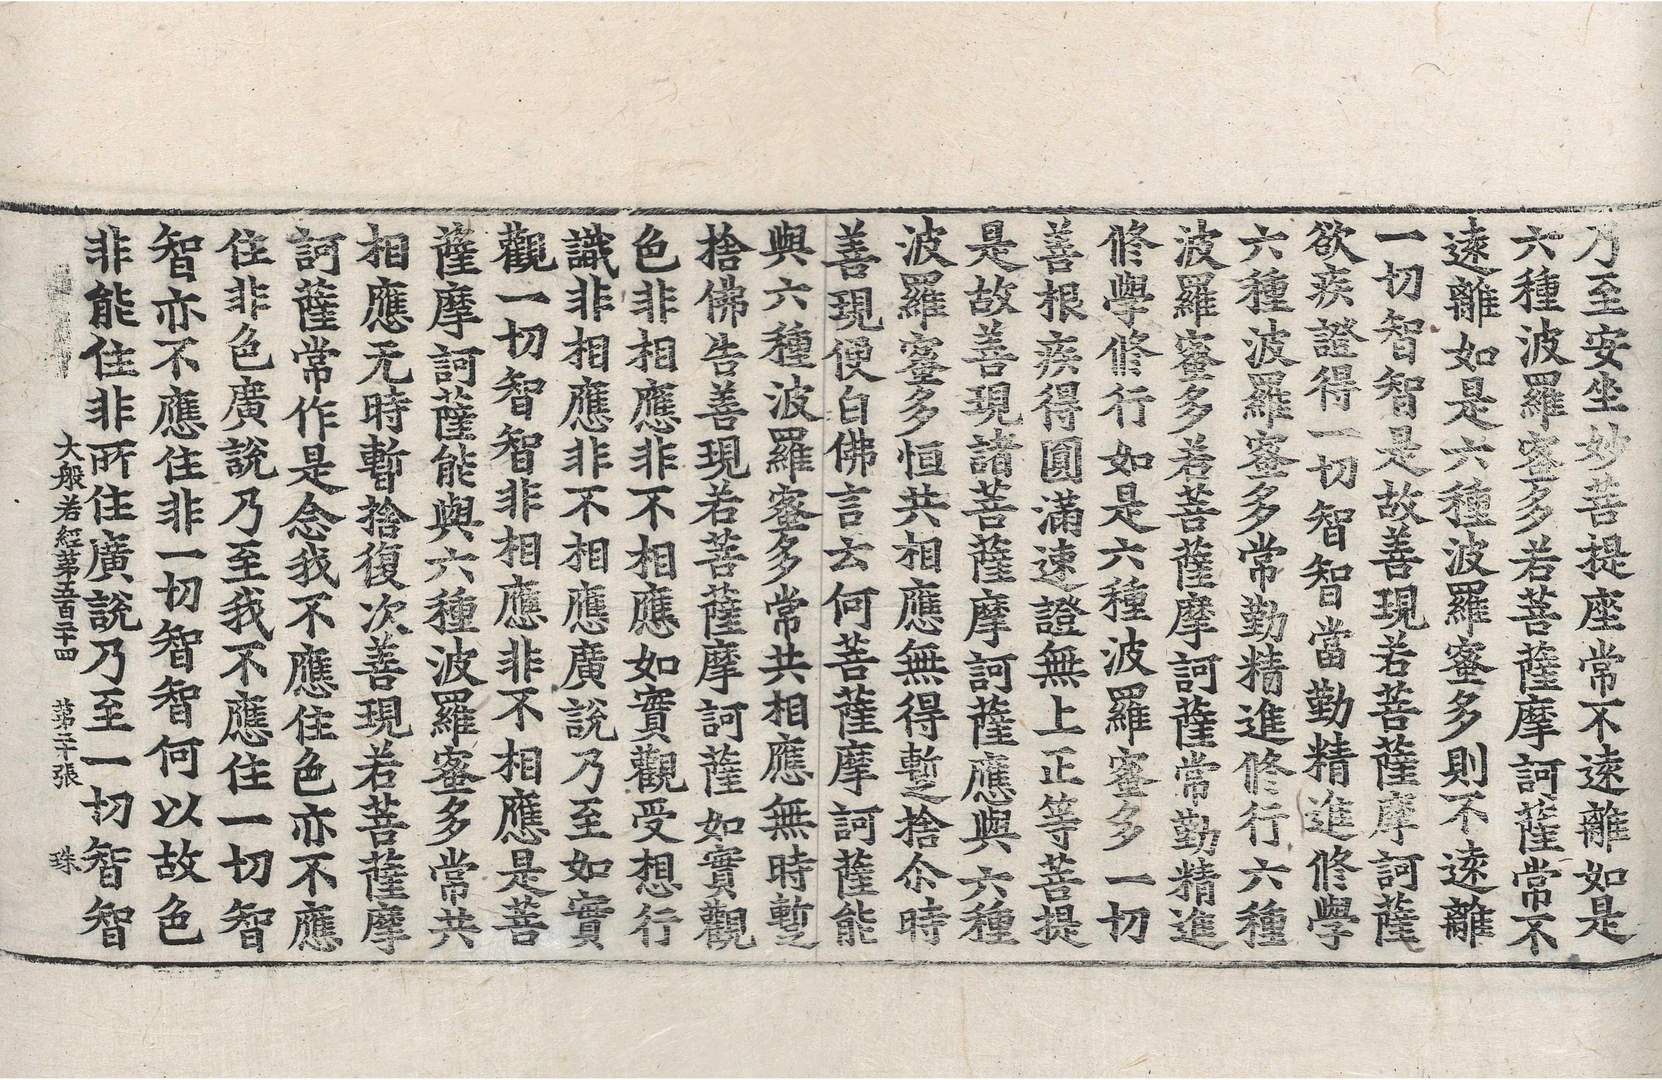 乃至安坐妙菩提座常不遠離如是
六種波羅蜜多若菩薩摩訶薩常不
遠離如是六種波羅蜜多則不遠離
一切智智是故善現若菩薩摩訶薩
欲疾證得一切智智當勤精進修學
六種波羅蜜多常勤精進修行六種
波羅蜜多若菩薩摩訶薩常勤精進
修學修行如是六種波羅蜜多一切
善根疾得圓滿速證無上正等菩提
是故善現諸菩薩摩訶薩應與六種
波羅蜜多恒共相應無得暫捨尒時
善現便白佛言云何菩薩摩訶薩能
與六種波羅蜜多常共相應無時暫
捨佛告善現若菩薩摩訶薩如實觀
色非相應非不相應如實觀受想行
識非相應非不相應廣說乃至如實
觀一切智智非相應非不相應是菩
薩摩訶薩能與六種波羅蜜多常共
相應无時暫捨復次善現若菩薩摩
訶薩常作是念我不應住色亦不應
住非色廣說乃至我不應住一切智
智亦不應住非一切智智何以故色
非能住非所住廣說乃至一切智智
大般若經苐五百二十四 苐二十張 珠